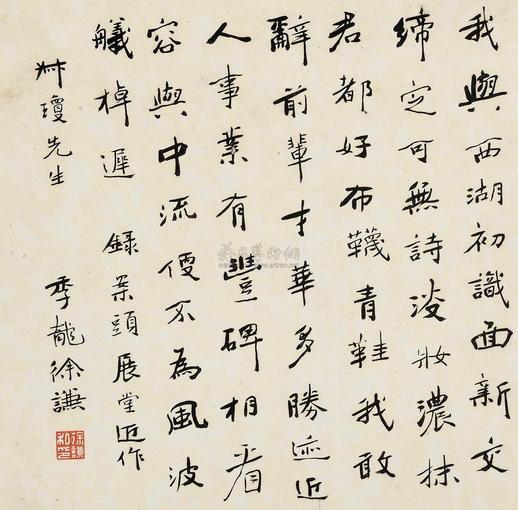 我與西湖初識面新交
締定可無詩淡妝濃抹
君都好布韈青鞋我敢
辭前輩才華多勝迹近
人事業有豐碑相看
容與中流便不為風波
艤棹遲
錄案頭展堂近作
林瓊先生
季龍徐謙